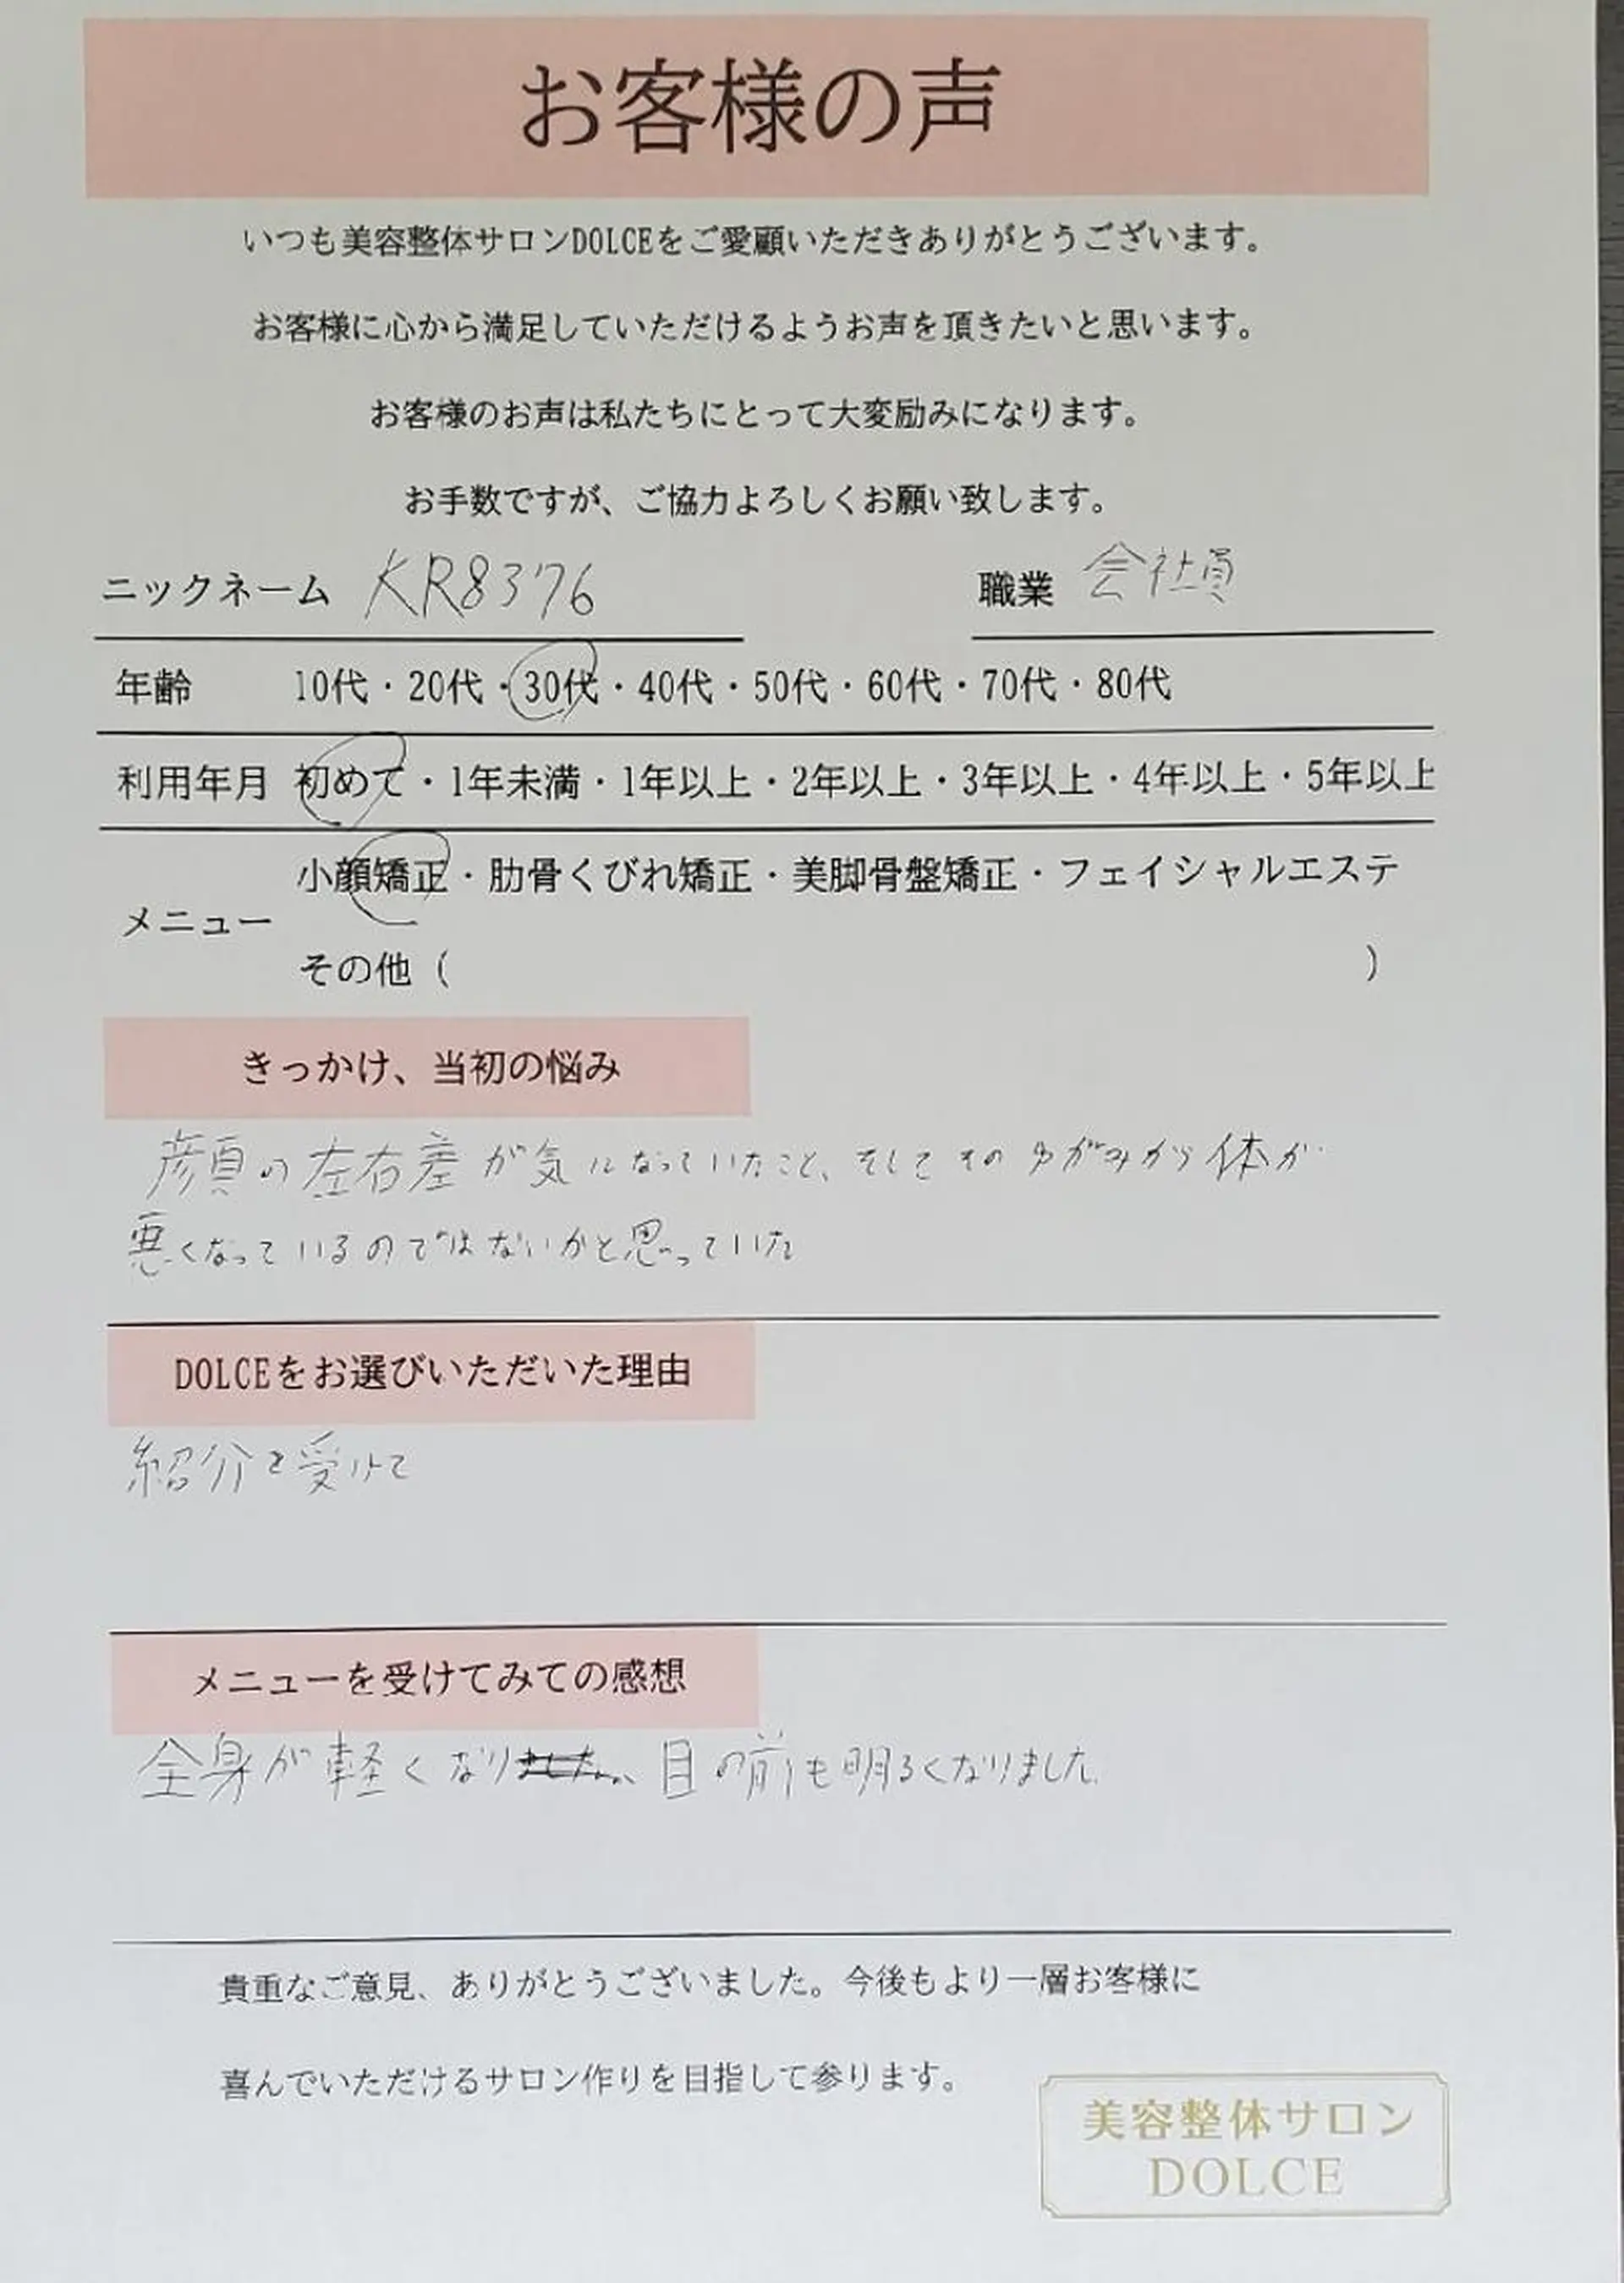 お客様の声
いつも美容整体サロンDOLCEをご愛顧いただきありがとうございます。
お客様に心から満足していただけるようお声を頂きたいと思います。
お客様のお声は私たちにとって大変励みになります。
お手数ですが、ご協力よろしくお願い致します。
ニックネーム KR8376 職業 会社員
年齢 10代・20代・30代・40代・50代・60代・70代・80代
利用年月 初めて・1年未満・1年以上・2年以上・3年以上・4年以上・5年以上
小顔矯正・肋骨くびれ矯正・美脚骨盤矯正・フェイシャルエステ
メニュー
その他( )
きっかけ、当初の悩み
顔の左右差が気になっていたこと、そしてそのゆがみから体が
悪くなっているのではないかと思っていた
DOLCEをお選びいただいた理由
紹介を受けて
メニューを受けてみての感想
全身が軽くなりました、目の前も明るくなりました。
貴重なご意見、ありがとうございました。今後もより一層お客様に
喜んでいただけるサロン作りを目指して参ります。
美容整体サロン
DOLCE